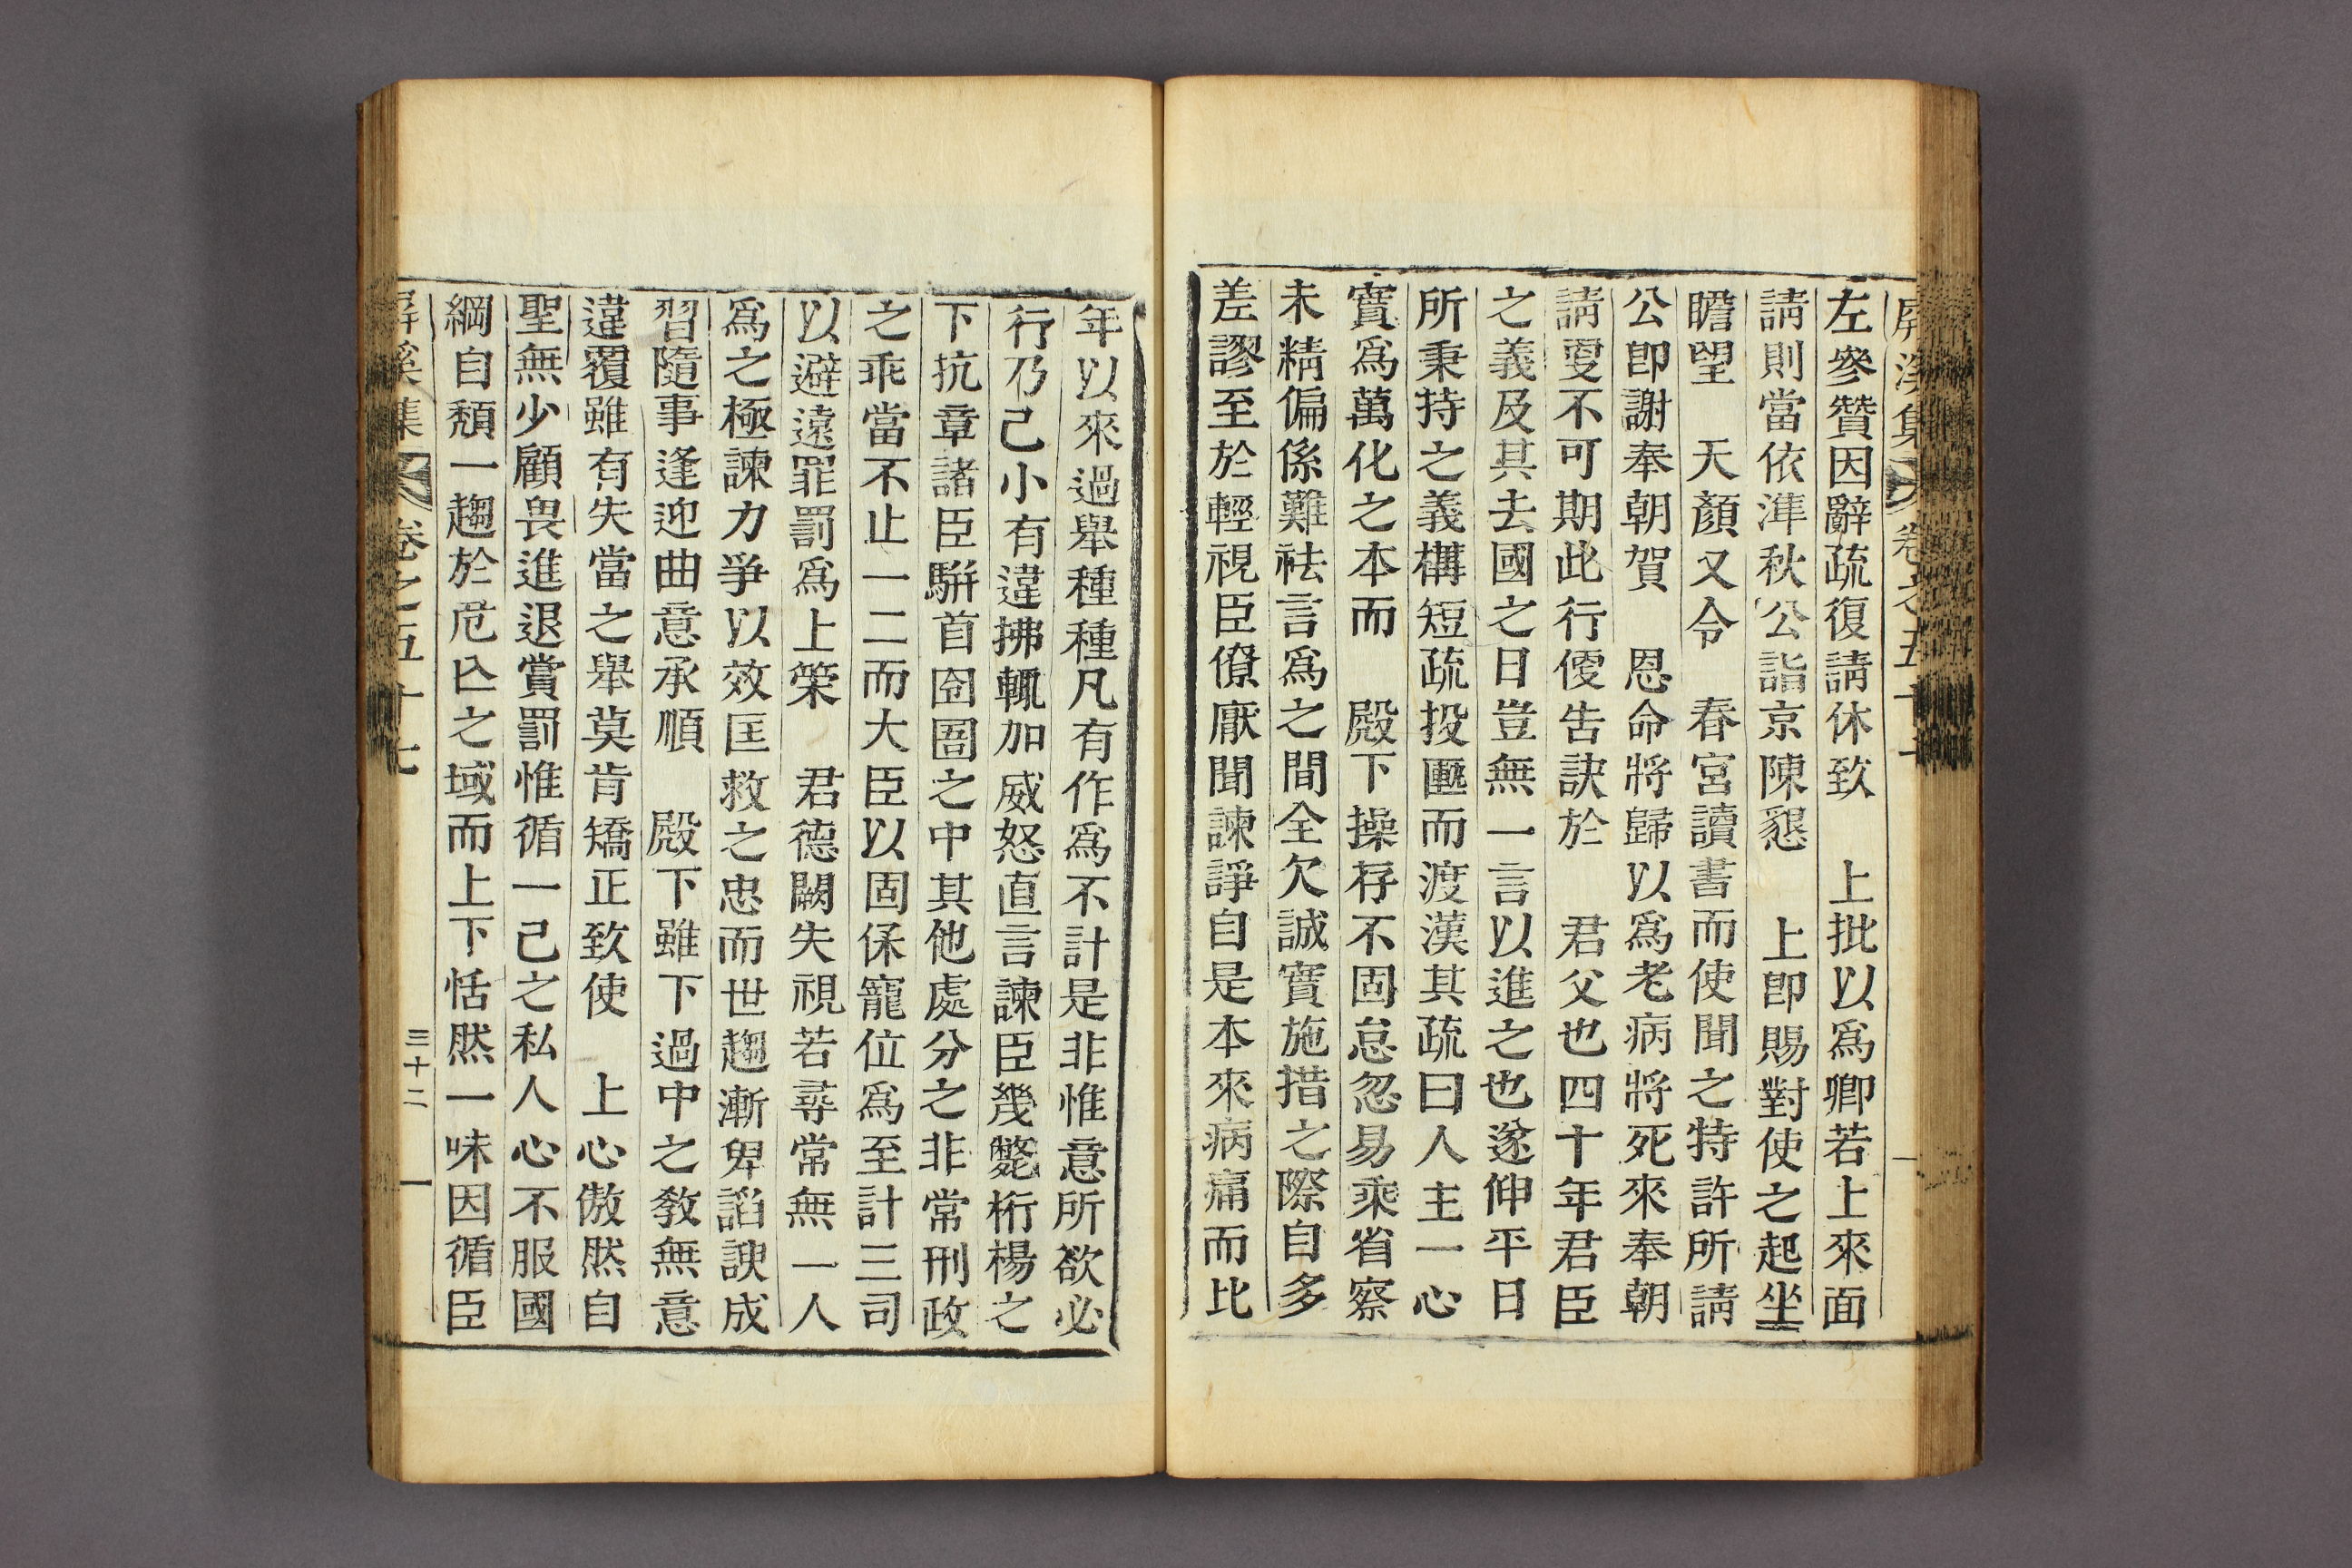 屛溪集 卷之五十七
左參贊因辭疏復請休致 上批以爲卿若上來面
請則當依準秋公詣京陳懇 上卽賜對使之起坐
瞻望 天顏又令 春宮讀書而使聞之特許所請
公卽謝奉朝賀 恩命將歸以爲老病將死來奉朝
請更不可期此行便告訣於 君父也四十年君臣
之義及其去國之日豈無一言以進之也遂伸平日
所秉持之義構短疏投匭而渡漢其疏曰人主一心
實爲萬化之本而 殿下操存不固怠忽易乘省察
未精偏係難祛言爲之間全欠誠實施措之際自多
差謬至於輕視臣僚厭聞諫諍自是本來病痛而比
年以來過舉種種凡有作爲不計是非惟意所欲必
行乃己小有違拂輒加威怒直言諫臣幾斃桁楊之
下抗章諸臣騈首囹圄之中其他處分之非常刑政
之乖當不止一二而大臣以固保寵位爲至計三司
以避遠罪罰爲上策 君德闕失視若尋常無一人
爲之極諫力爭以效匡救之忠而世趨漸卑諂諛成
習隨事逢迎曲意承順 殿下雖下過中之敎無意
違覆雖有失當之舉莫肯矯正致使 上心傲然自
聖無少顧畏進退賞罰惟循一己之私人心不服國
綱自頹一趨於危亡之域而上下恬然一味因循臣
屛溪集 卷之五十七 三十二